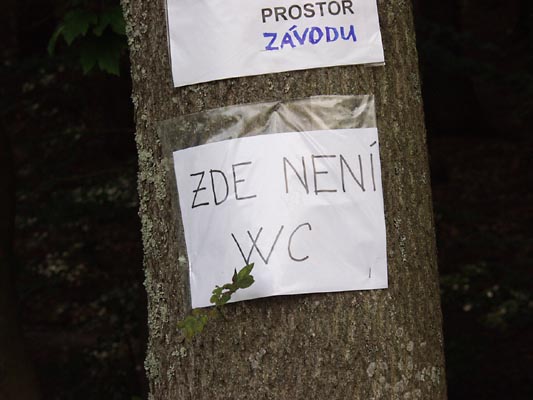 PROSTOR
ZÁVODU
ZDE NENÍ
WC